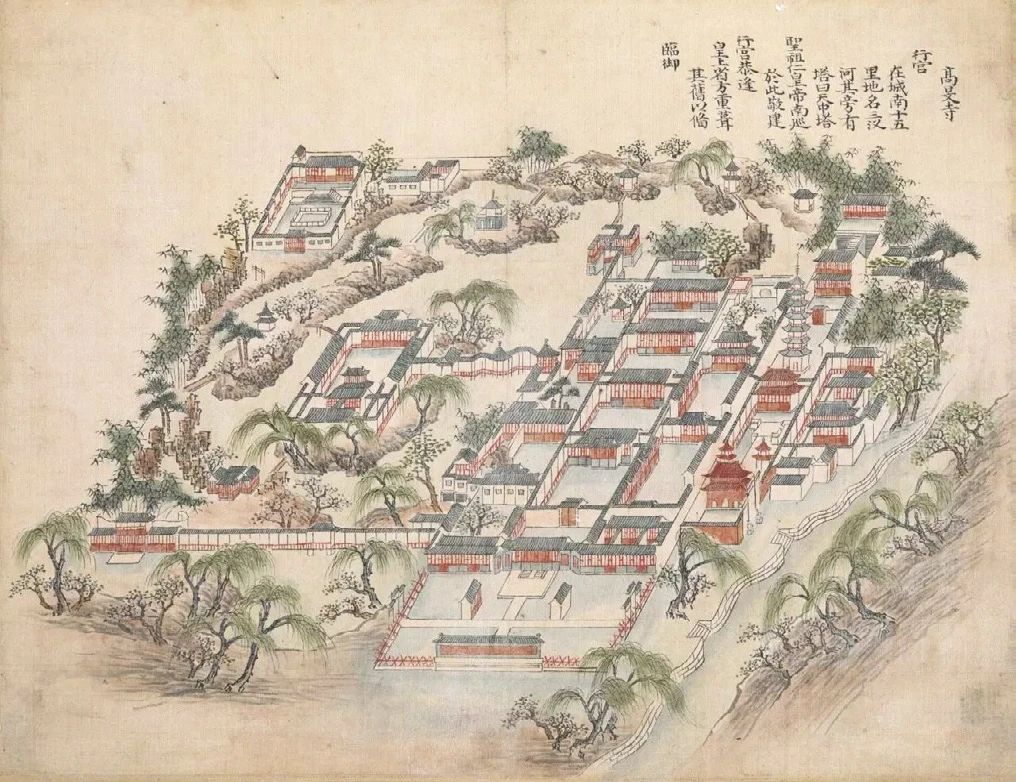 高旻寺
行宮
在城南十五
里地名三汊
河其旁有
塔曰天中塔
聖祖仁皇帝南巡
於此敬建
行宮恭逢
皇上省方重葺
其舊以俻
臨御